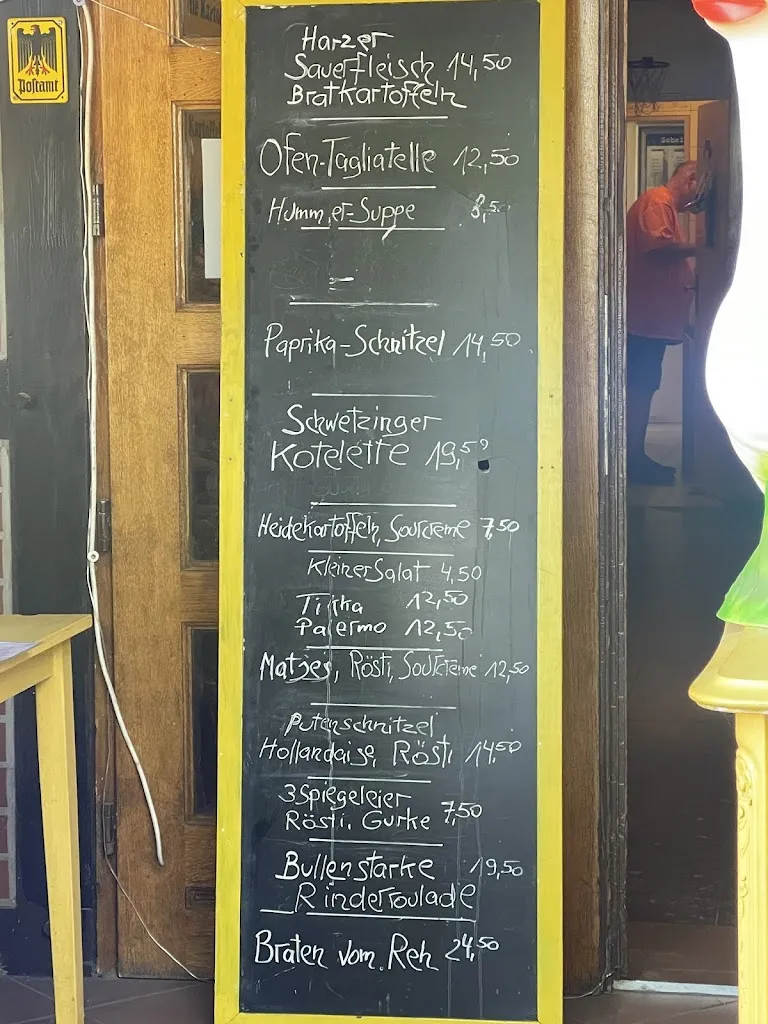 Postamt
Harzer
Sauerfleisch 14,50
Bratkartoffeln
Ofen-Tagliatelle 12,50
Hummer-Suppe 8,50
Paprika-Schnitzel 14,50
Schwetzinger
Kotelette 19,50
Heidekartoffeln, Sourcreme 7,50
Kleiner Salat 4,50
12,50
Palermo 12,50
Matjes, Rösti, Sourcreme 12,50
Putenschnitzel
Hollandaise, Rösti 14,50
3 Spiegeleier
Rösti, Gurke 7,50
Bullenstarke 19,50
Rinderroulade
Braten vom Reh 24,50